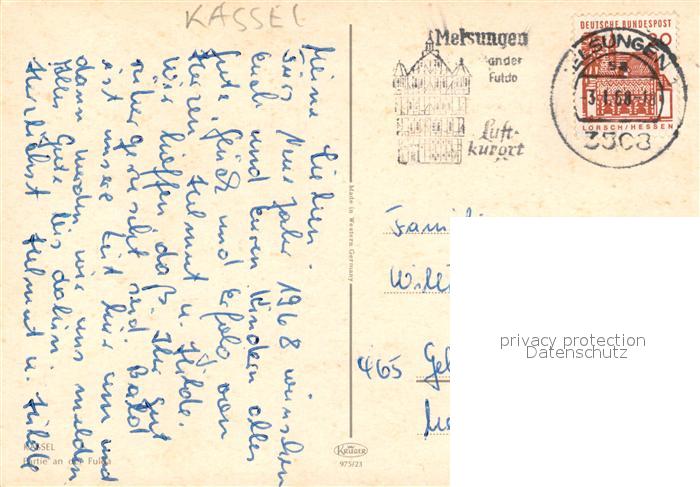 KASSEL
Meine Lieben.
Fürs Neue Jahr 1968 wünschen
euch und euren Kindern alles
Gute, Glück und Erfolg von
Herzen, Helmut u. Hilde.
Wir hoffen daß Ihr gut
rübergerutscht seid. Bald
ist unsere Zeit hier um und
dann werden wir uns melden
Alles Gute bis dahin.
Herzlichst Helmut u. Hilde
KASSEL
Partie an der Fulda
Made in Western Germany
KRÜGER
975/23
Melsungen
an der
Fulda
Luft-
kurort
DEUTSCHE BUNDESPOST
20
LORSCH/HESSEN
MELSUNGEN 1
3.1.68
3508
Famili
Wil
465 Gel
privacy protection
Datenschutz